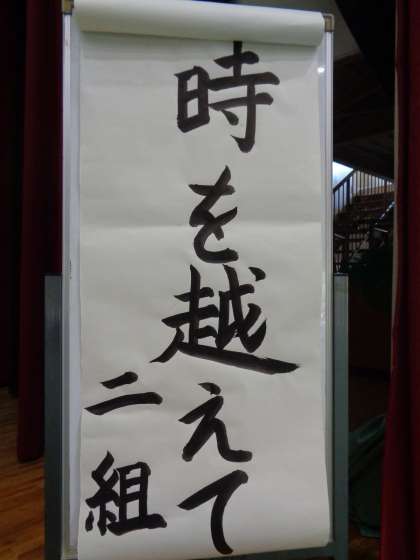 時を越えて
二組